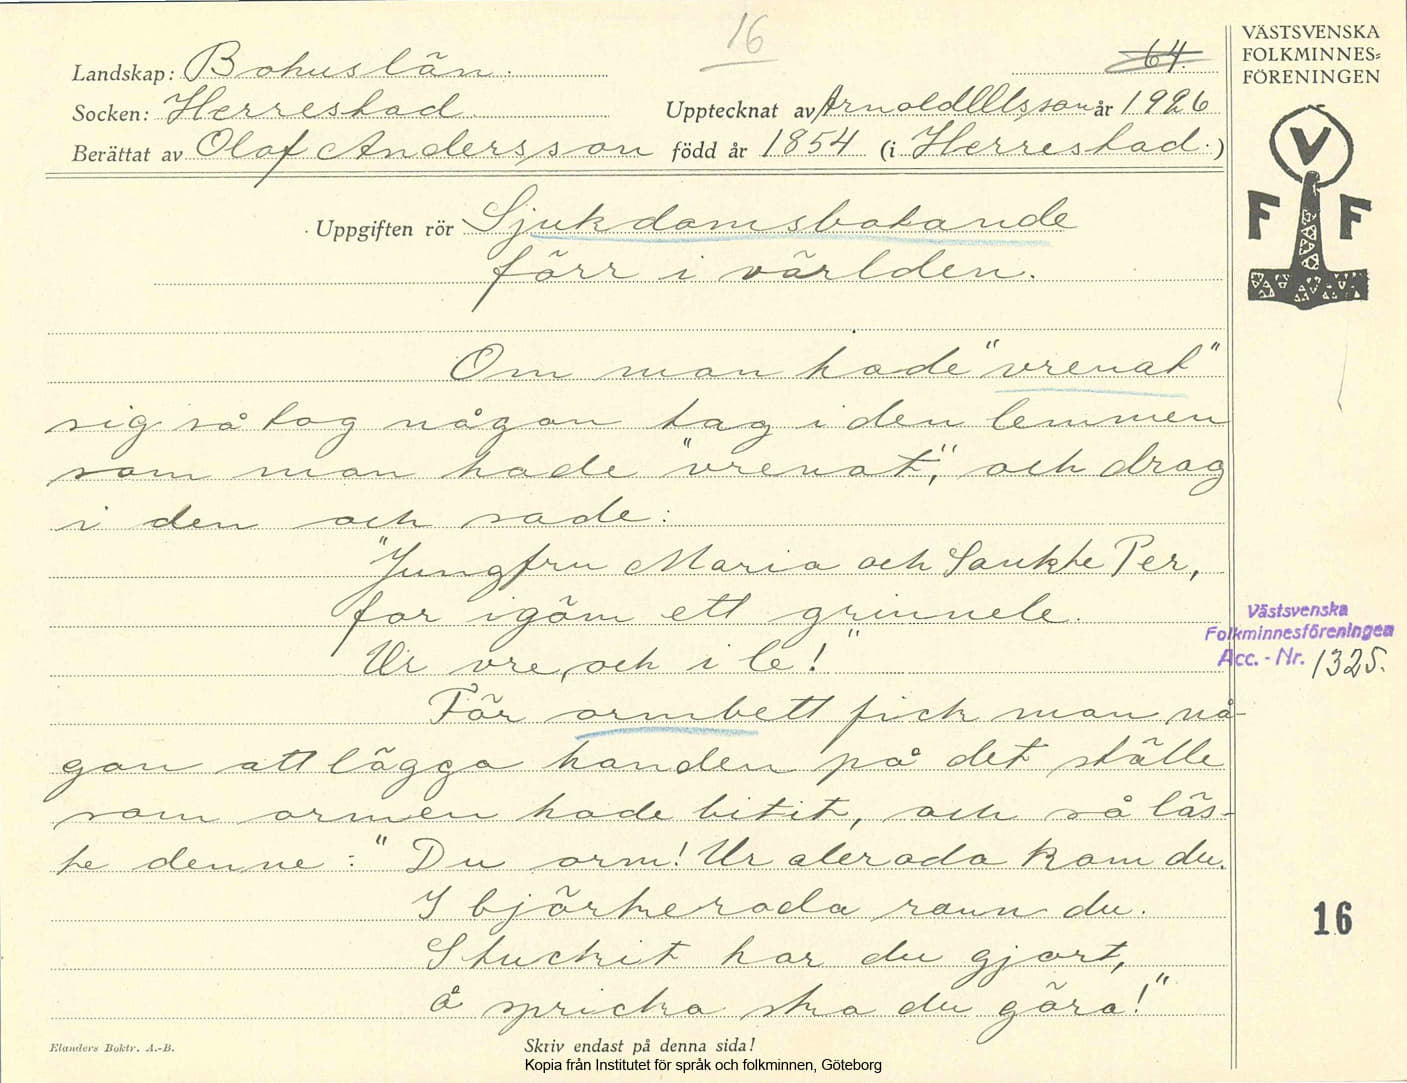 16
64.
VÄSTSVENSKA
FOLKMINNES=
FÖRENINGEN
Landskap: Bohuslän.
Socken: Herrestad. Upptecknat av Arnold Olsson år 1926
Berättat av Olof Andersson född år 1854 (i Herrestad.)
V
F F
Uppgiften rör Sjukdomsbotande
förr i världen.
Om man hade "vrenat"
sig så tog någon tag i den lemmen
som man hade "vrenat", och drog
i den och sade:
"Jungfru Maria och Sankte Per,
for igöm ett grinnele.
Ur vre, och i le!"
För ormbett fick man nå-
gon att lägga handen på det ställe
som ormen hade bitit, och så läs-
te denne: "Du orm! Ur alerada kom du.
I björkerada rann du.
Stuckit har du gjort,
å spricka ska du göra!"
Västsvenska
Folkminnesföreningen
Acc.-Nr. 1325.
16
Elanders Boktr. A.-B.
Skriv endast på denna sida!
Kopia från Institutet för språk och folkminnen, Göteborg